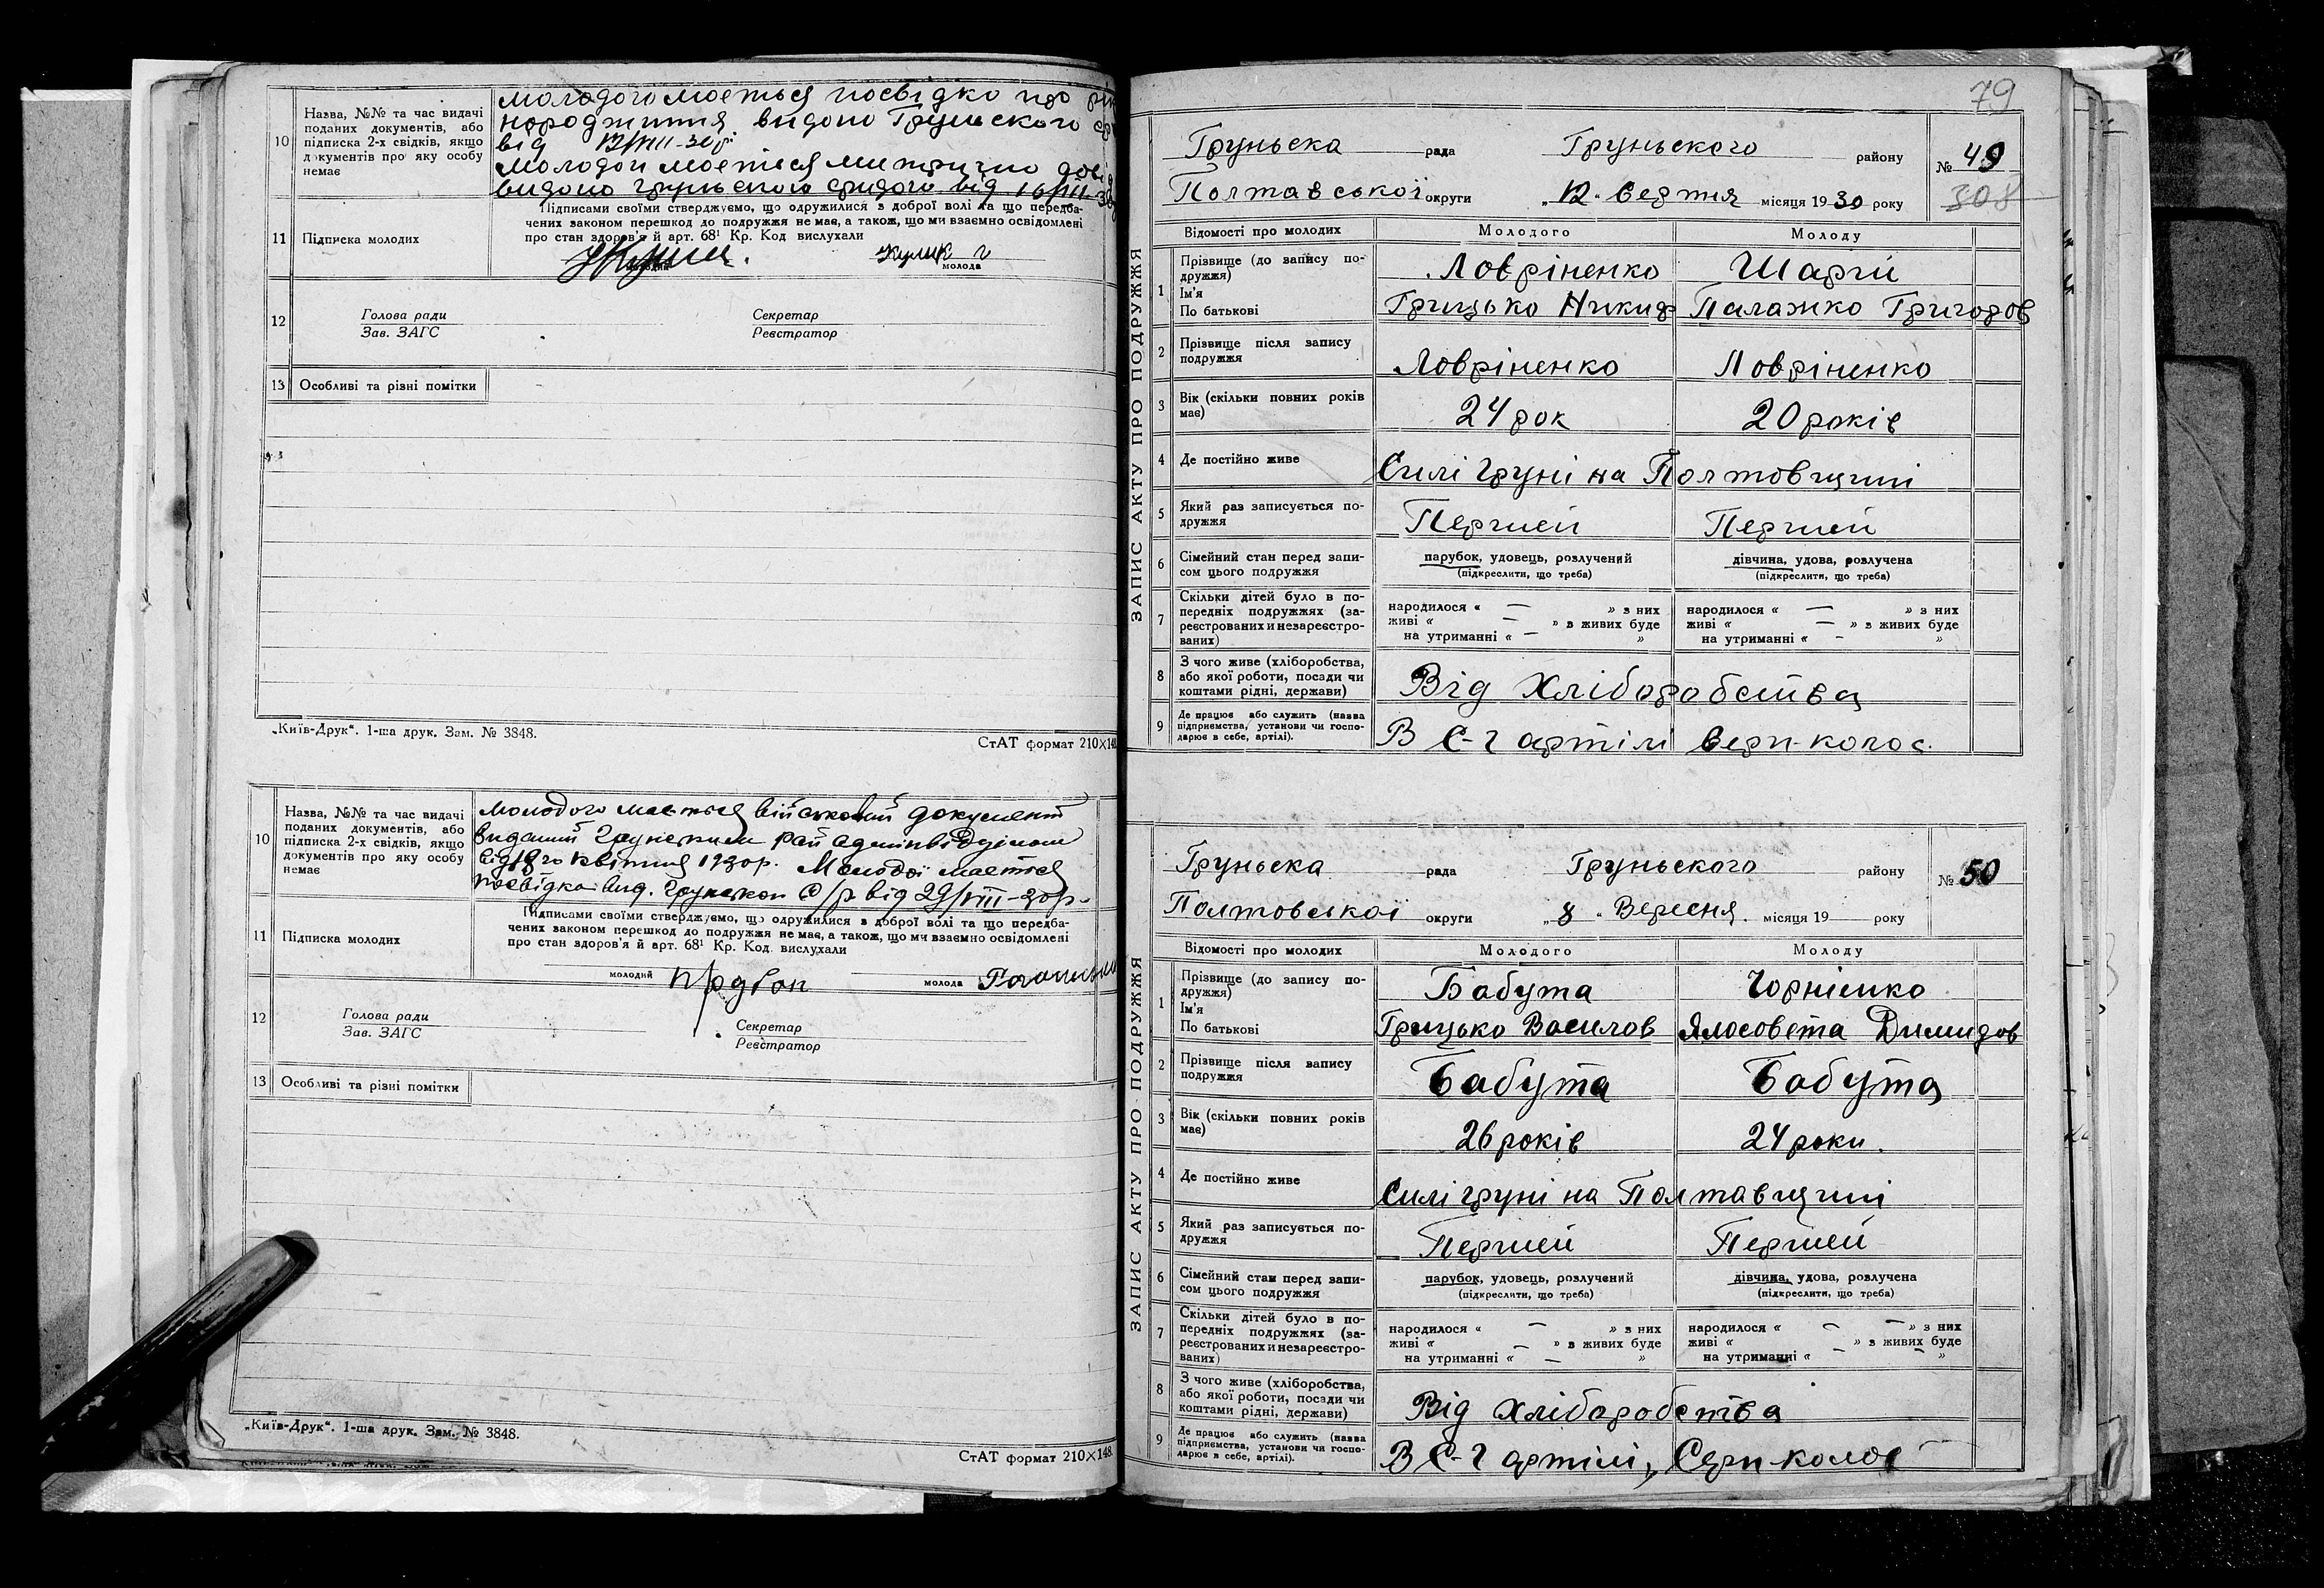 10
Назва, №№ та час видачі
поданих документів, або
підписка 2-х свідків, якщо
документів про яку особу
немає
молодого моеться посвідка про
народжиння видано Груньского
від 12/VIII-30р
молодои моеться митрично
видано Груньского від 16/VIII-30
11
Підписка молодих
Підписами своїми стверджуємо, що одружилися з доброї волі та що передба-
чених законом перешкод до подружжя немає, а також, що ми взаємно освідомлені
про стан здоров'я й арт. 68¹ Кр. Код вислухали
Кулик
молода
12
Голова ради
Зав. ЗАГС
Секретар
Реєстратор
13
Особливі та різні помітки
„Київ-Друк“. 1-ша друк. Зам. № 3848.
СтАТ формат 210×148
10
Назва, №№ та час видачі
поданих документів, або
підписка 2-х свідків, якщо
документів про яку особу
немає
молодого маеться військовий документ
виданий Грунским Рай адмінвідділом
від 18го квітня 1930р. Молодої маеться
посвідка вид. Грунскои С/р від 29/VIII-30р.
11
Підписка молодих
Підписами своїми стверджуємо, що одружилися з доброї волі та що передба-
чених законом перешкод до подружжя немає, а також, що ми взаємно освідомлені
про стан здоров'я й арт. 68¹ Кр. Код. вислухали
молодий
молода
12
Голова ради
Зав. ЗАГС
Секретар
Реєстратор
13
Особливі та різні помітки
„Київ-Друк“. 1-ша друк. Зам. № 3848.
СтАТ формат 210×148.
79
ЗАПИС АКТУ ПРО ПОДРУЖЖЯ
Груньска рада Груньского району № 49
Полтавської округи „12“ Вертня місяця 1930 року
308
Відомості про молодих Молодого Молоду
1
Прізвище (до запису по-
дружжя)
Ім'я
По батькові
Ловріненко Шаргій
Грицько Никиф Палажко Григоров
2
Прізвище після запису
подружжя
Ловріненко Ловріненко
3
Вік (скільки повних років
має)
24 рок 20 років
4
Де постійно живе
Силі Груні на Полтовщині
5
Який раз записується по-
дружжя
Першей Першей
6
Сімейний стан перед запи-
сом цього подружжя
парубок, удовець, розлучений
(підкреслити, що треба)
дівчина, удова, розлучена
(підкреслити, що треба)
7
Скільки дітей було в по-
передніх подружжях (за-
реєстрованих и незареєстро-
ваних)
народилося « — » з них
живі « — » в живих буде
на утриманні « — »
народилося « — » з них
живі « — » в живих буде
на утриманні « — »
8
З чого живе (хліборобства,
або якої роботи, посади чи
коштами рідні, держави)
Від Хліборобства
9
Де працює або служить (назва
підприємства, установи чи госпо-
дарює в себе, артілі).
В С-г артілі Серп-колос.
ЗАПИС АКТУ ПРО ПОДРУЖЖЯ
Груньска рада Груньского району № 50
Полтовської округи „8“ Вересня місяця 19 року
Відомості про молодих Молодого Молоду
1
Прізвище (до запису по-
дружжя)
Ім'я
По батькові
Бабута Чорніенко
Грицько Василов Ялосовета Димидов
2
Прізвище після запису
подружжя
Бабута Бабута
3
Вік (скільки повних років
має)
26 років 24 роки.
4
Де постійно живе
Силі Груні на Полтавщині
5
Який раз записується по-
дружжя
Першей Першей
6
Сімейний стан перед запи-
сом цього подружжя
парубок, удовець, розлучений
(підкреслити, що треба)
дівчина, удова, розлучена
(підкреслити, що треба)
7
Скільки дітей було в по-
передніх подружжях (за-
реєстрованих и незареєстро-
ваних)
народилося « — » з них
живі « — » в живих буде
на утриманні « — »
народилося « — » з них
живі « — » в живих буде
на утриманні « — »
8
З чого живе (хліборобства,
або якої роботи, посади чи
коштами рідні, держави)
Від хліборобства
9
Де працює або служить (назва
підприємства, установи чи госпо-
дарює в себе, артілі).
В С-г артілі, Серп-колос